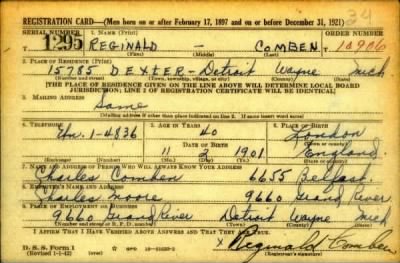 REGISTRATION CARD—(Men born on or after February 17, 1897 and on or before December 31, 1921) 34
SERIAL NUMBER 1. NAME (Print) ORDER NUMBER
1295 REGINALD - COMBEN 10906
(First) (Middle) (Last)
2. PLACE OF RESIDENCE (Print)
15785 DEXTER - Detroit Wayne Mich
(Number and street) (Town, township, village, or city) (County) (State)
[THE PLACE OF RESIDENCE GIVEN ON THE LINE ABOVE WILL DETERMINE LOCAL BOARD
JURISDICTION; LINE 2 OF REGISTRATION CERTIFICATE WILL BE IDENTICAL]
3. MAILING ADDRESS
Same
(Mailing address if other than place indicated on line 2. If same insert word same)
4. TELEPHONE 5. AGE IN YEARS 6. PLACE OF BIRTH
1-4836 40 London
DATE OF BIRTH (Town or county)
11 2 1901 England
(Exchange) (Number) (Mo.) (Day) (Yr.) (State or country)
7. NAME AND ADDRESS OF PERSON WHO WILL ALWAYS KNOW YOUR ADDRESS
Charles Comben 6655 Belfast
8. EMPLOYER'S NAME AND ADDRESS
Charles Moore 9660 Grand River
9. PLACE OF EMPLOYMENT OR BUSINESS
9660 Grand River Detroit Wayne Mich
(Number and street or R. F. D. number) (Town) (County) (State)
I AFFIRM THAT I HAVE VERIFIED ABOVE ANSWERS AND THAT THEY ARE TRUE.
D. S. S. Form 1
(Revised 1-1-42) x Reginald Comben
(Registrant's signature)